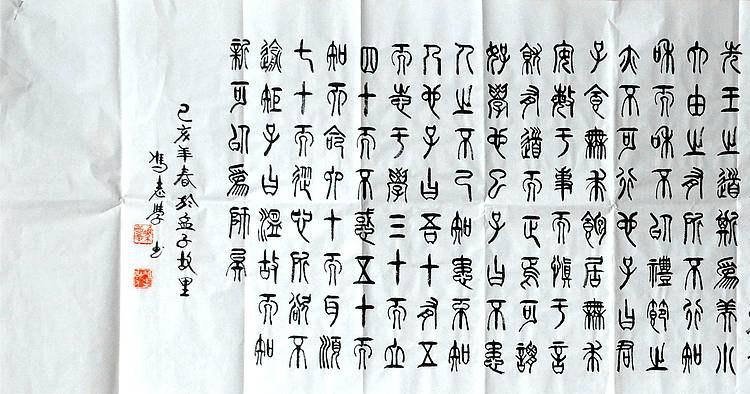 先王之道斯為美小
大由之有所不行知
和而和不以禮節之
亦不可行也子曰君
子食無求飽居無求
安敏于事而慎于言
就有道而正焉可謂
好學也已子曰不患
人之不己知患不知
人也子曰吾十有五
而志于學三十而立
四十而不惑五十而
知天命六十而耳順
七十而從心所欲不
逾矩子曰溫故而知
新可以為師矣
己亥年春於孟子故里
馮志學書